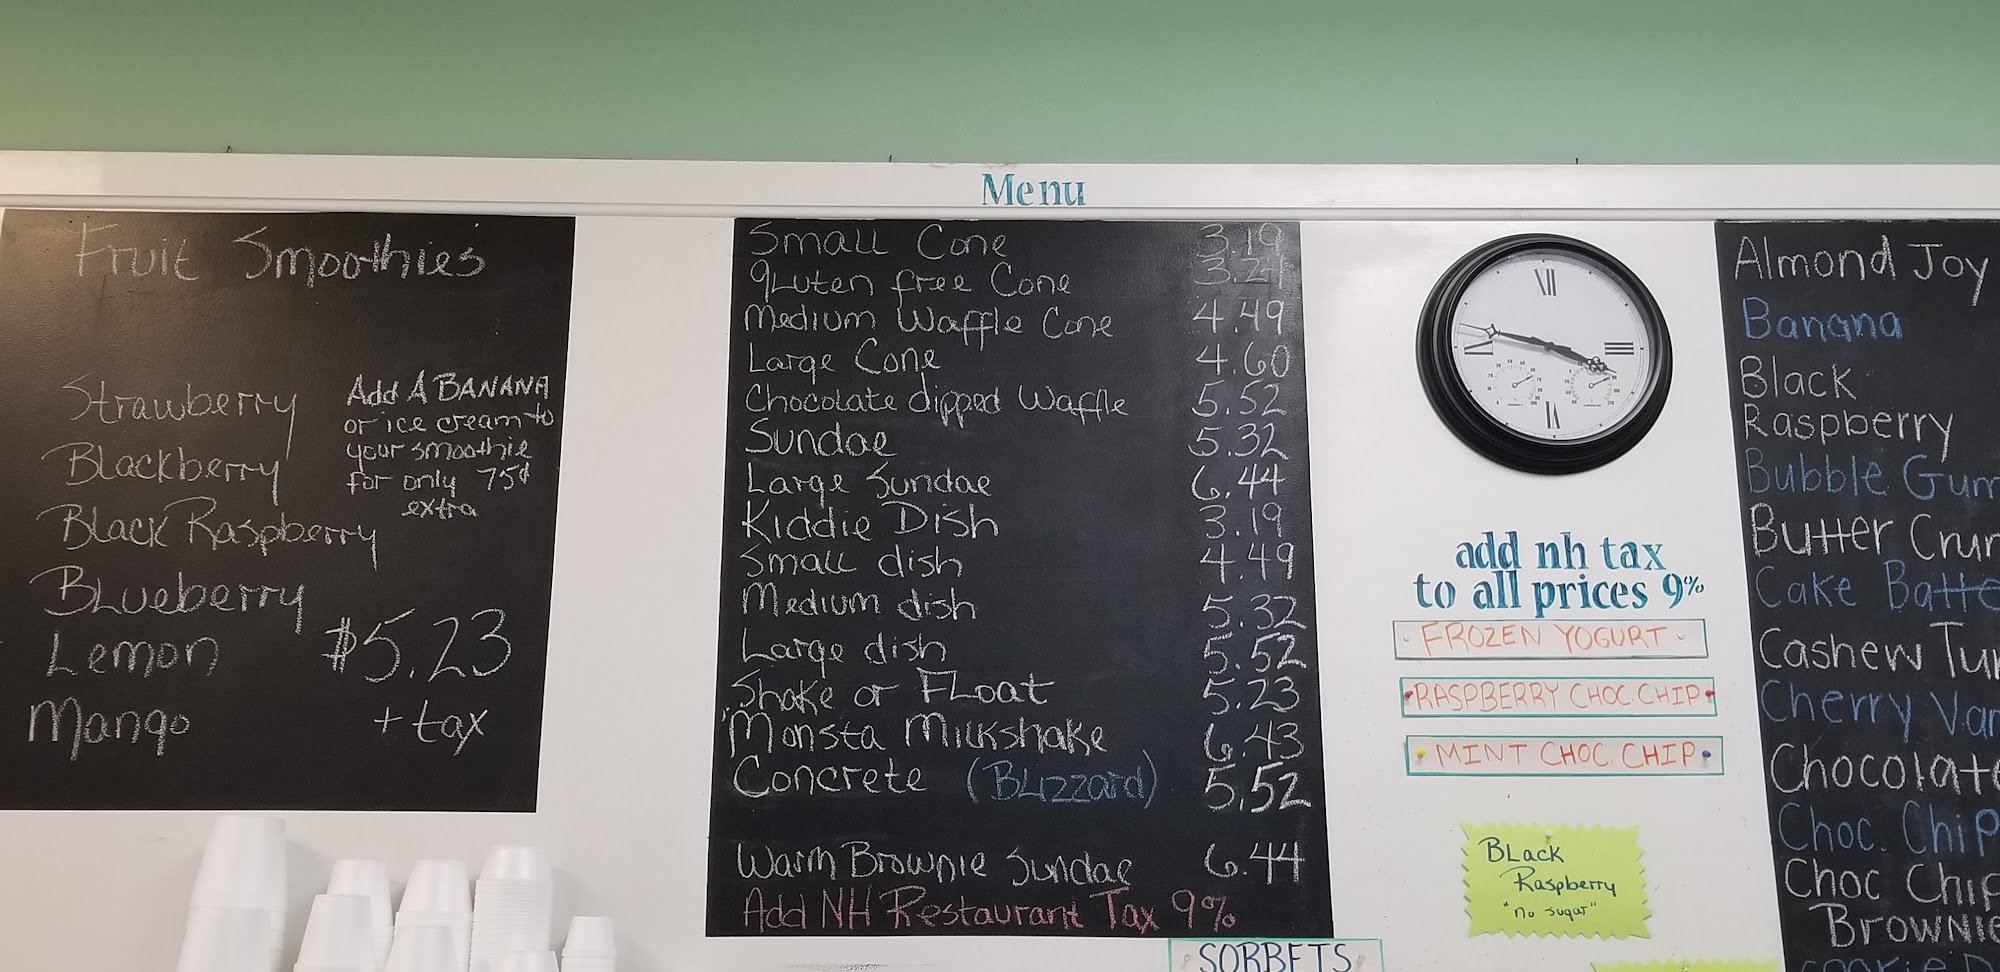 Menu
Fruit Smoothies
Strawberry
Blackberry
Black Raspberry
Blueberry
Lemon
Mango
Add A BANANA
or ice cream to
your smoothie
for only 75¢
extra
$5.23
+ tax
Small Cone 3.19
gluten free Cone
Medium Waffle Cone 4.49
Large Cone 4.60
Chocolate dipped Waffle 5.52
Sundae 5.32
Large Sundae 6.44
Kiddie Dish 3.19
Small dish 4.49
Medium dish 5.32
Large dish 5.52
Shake or Float 5.23
Monsta Milkshake 6.43
Concrete (Blizzard) 5.52
Warm Brownie Sundae 6.44
Add NH Restaurant Tax 9%
XII
III
VI
IX
add nh tax
to all prices 9%
FROZEN YOGURT
RASPBERRY CHOC. CHIP
MINT CHOC. CHIP
Black
Raspberry
"no sugar"
SORBETS
Almond Joy
Banana
Black
Raspberry
Bubble Gum
Butter Crun
Cake Batte
Cashew Tur
Cherry Van
Chocolate
Choc. Chip
Choc Chip
Brownie